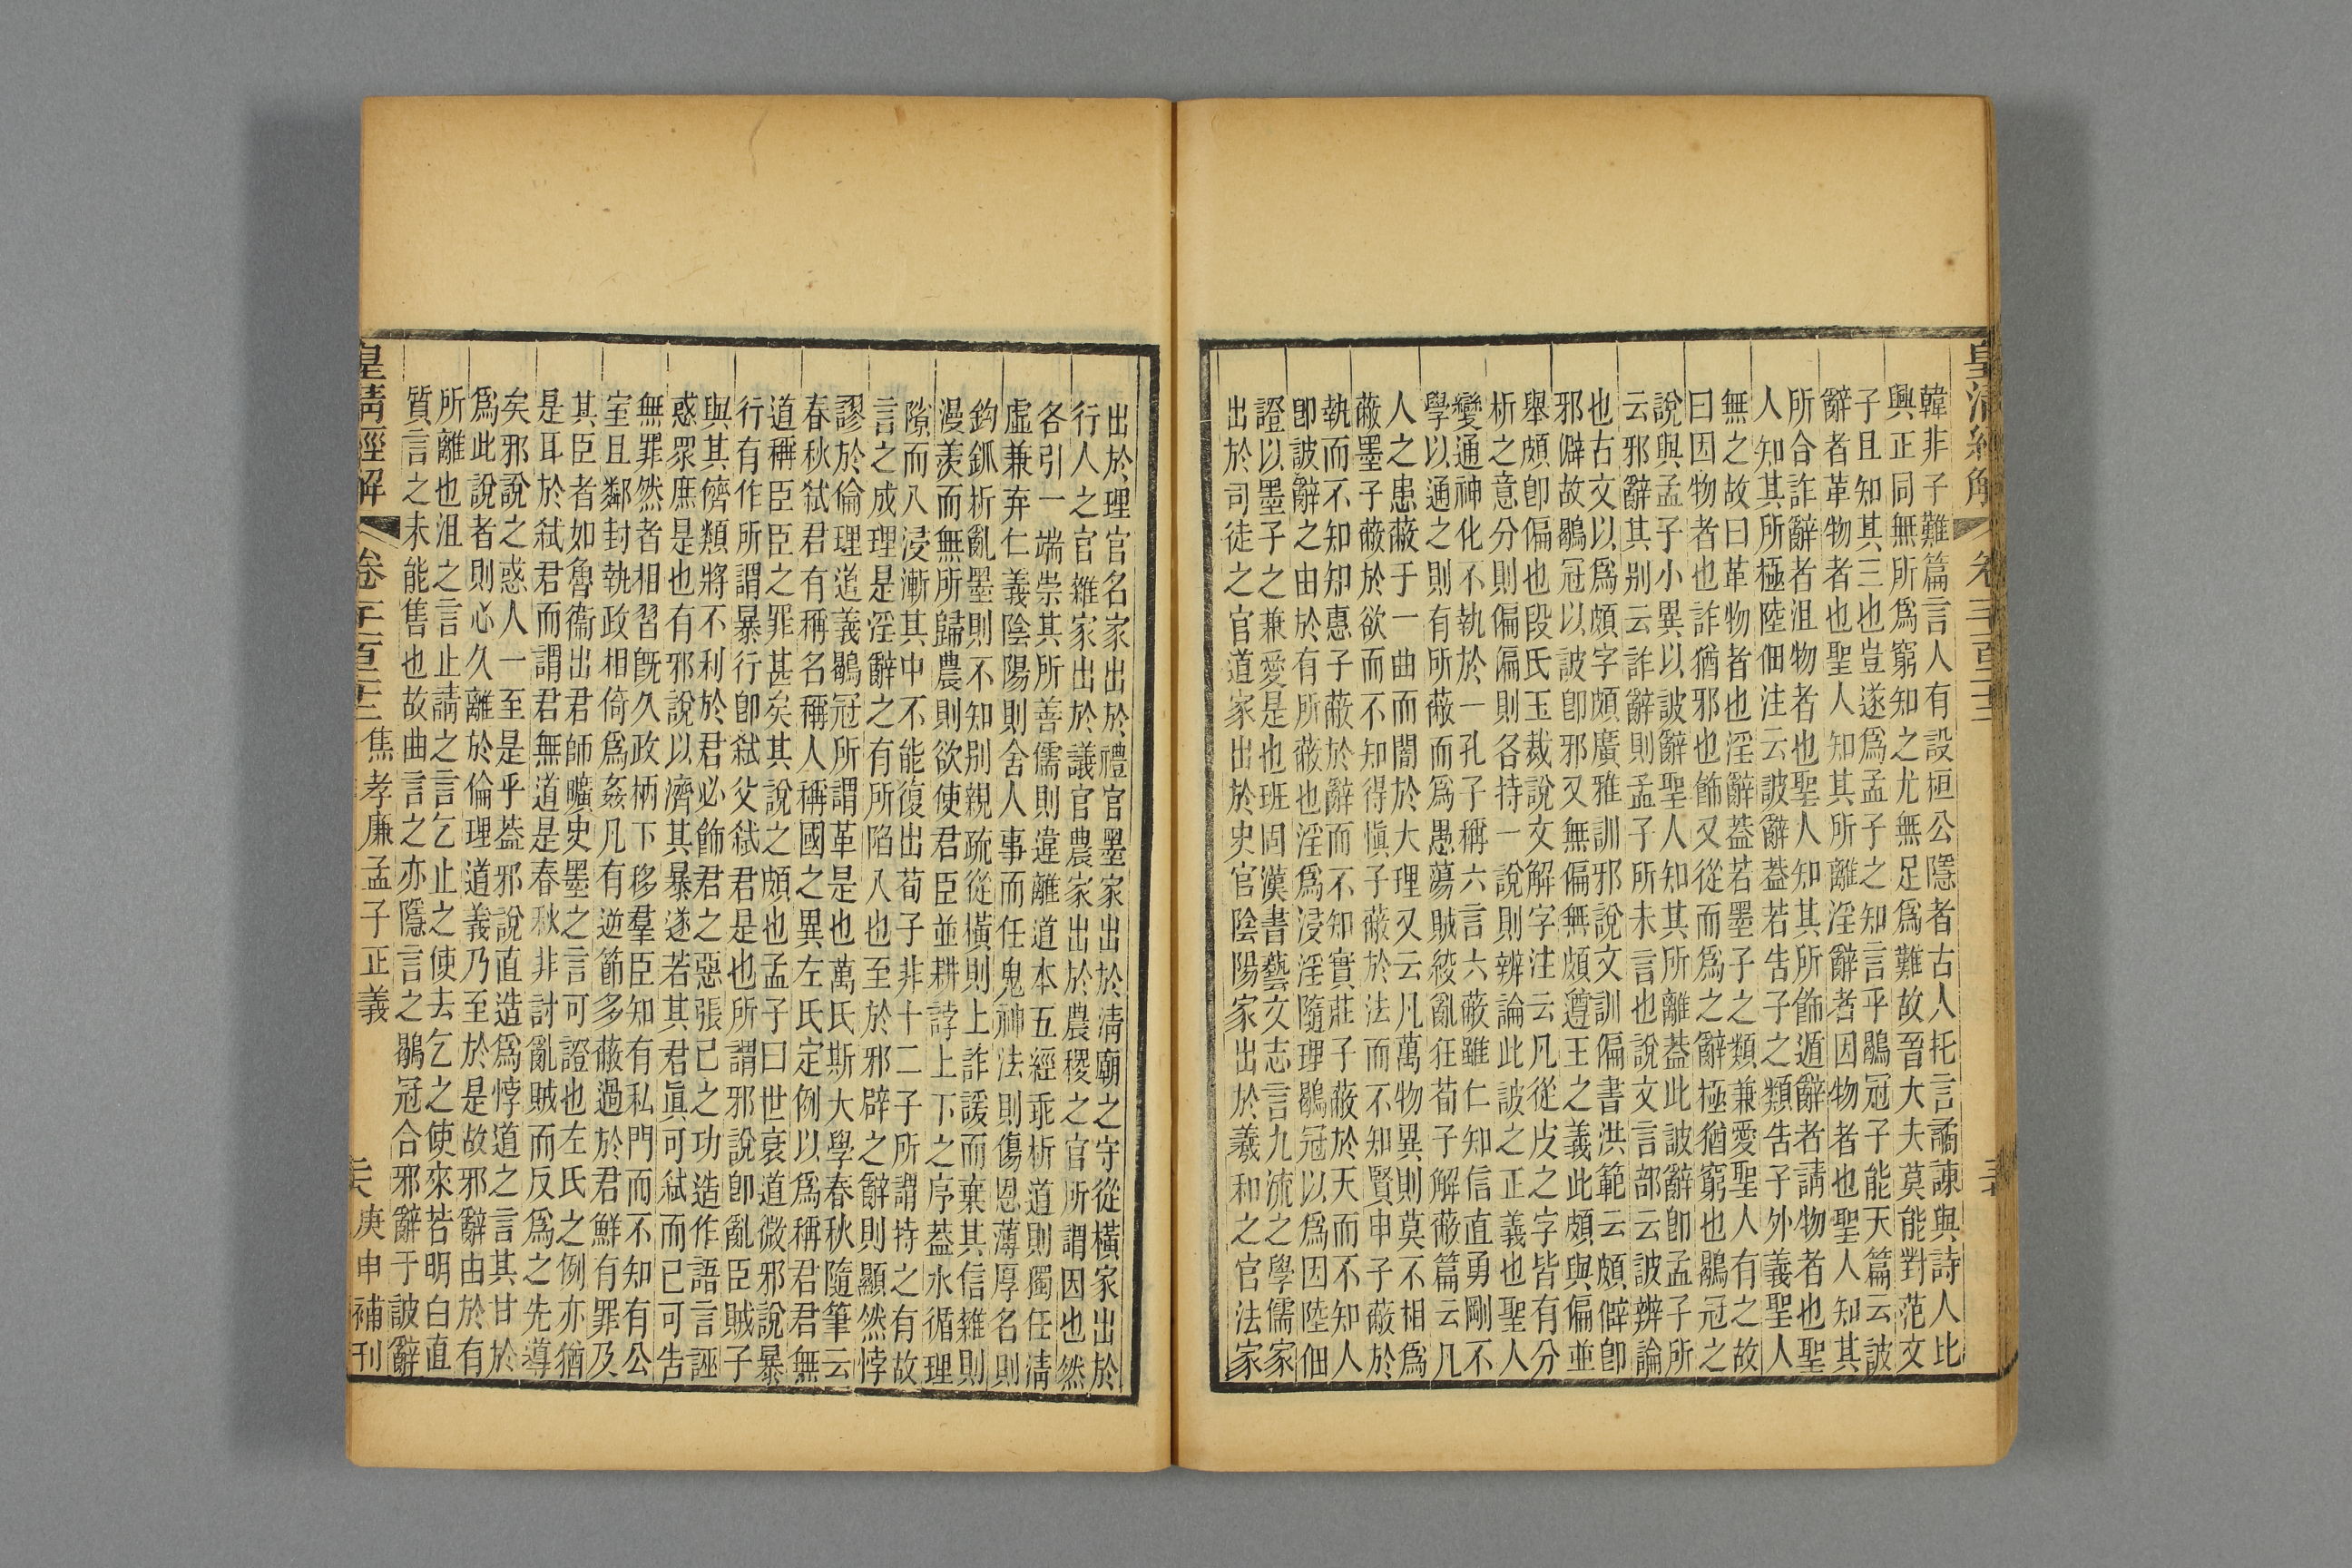 皇清經解
韓非子難篇言人有設桓公隱者古人托言譎諫與詩人比
興正同無所爲窮知之尤無足爲難故晉大夫莫能對范文
子且知其三也豈遂爲孟子之知言乎鶡冠子能天篇云詖
辭者革物者也聖人知其所離淫辭者因物者也聖人知其
所合詐辭者沮物者也聖人知其所飾遁辭者請物者也聖
人知其所極陸佃注云詖辭葢若告子之類告子外義聖人
無之故曰革物者也淫辭葢若墨子之類兼愛聖人有之故
曰因物者也詐猶邪也飾又從而爲之辭極猶窮也鶡冠之
說與孟子小異以詖辭聖人知其所離葢此詖辭卽孟子所
云邪辭其别云詐辭則孟子所未言也說文言部云詖辨論
也古文以爲頗字頗廣雅訓邪說文訓偏書洪範云頗僻卽
邪僻故鶡冠以詖卽邪又無偏無頗遵王之義此頗與偏並
舉頗卽偏也段氏玉裁說文解字注云凡從皮之字皆有分
析之意分則偏偏則各持一說則辨論此詖之正義也聖人
變通神化不執於一孔子稱六言六蔽雖仁知信直勇剛不
學以通之則有所蔽而爲愚蕩賊絞亂狂荀子解蔽篇云凡
人之患蔽于一曲而闇於大理又云凡萬物異則莫不相爲
蔽墨子蔽於欲而不知得愼子蔽於法而不知賢申子蔽於
執而不知知惠子蔽於辭而不知實莊子蔽於天而不知人
卽詖辭之由於有所蔽也淫爲浸淫隨理鶡冠以爲因陸佃
證以墨子之兼愛是也班固漢書藝文志言九流之學儒家
出於司徒之官道家出於史官陰陽家出於羲和之官法家
出於理官名家出於禮官墨家出於淸廟之守從橫家出於
行人之官雜家出於議官農家出於農稷之官所謂因也然
各引一端崇其所善儒則違離道本五經乖析道則獨任淸
虛兼弃仁義陰陽則舍人事而任鬼神法則傷恩薄厚名則
鉤鈲析亂墨則不知别親疏從橫則上詐諼而棄其信雜則
漫羨而無所歸農則欲使君臣並耕誖上下之序葢水循理
隙而入浸漸其中不能復出荀子非十二子所謂持之有故
言之成理是淫辭之有所陷入也至於邪辟之辭則顯然悖
謬於倫理道義鶡冠所謂革是也萬氏斯大學春秋隨筆云
春秋弑君有稱名稱人稱國之異左氏定例以爲稱君君無
道稱臣臣之罪甚矣其說之頗也孟子曰世衰道微邪說暴
行有作所謂暴行卽弑父弑君是也所謂邪說卽亂臣賊子
與其儕類將不利於君必飾君之惡張已之功造作語言誣
惑眾庶是也有邪說以濟其暴遂若其君眞可弑而已可告
無罪然者相習旣久政柄下移羣臣知有私門而不知有公
室且鄰封執政相倚爲姦凡有逆節多蔽過於君鮮有罪及
其臣者如魯衞出君師曠史墨之言可證也左氏之例亦猶
是耳於弑君而謂君無道是春秋非討亂賊而反爲之先導
矣邪說之惑人一至是乎葢邪說直造爲悖道之言其甘於
爲此說者則心久離於倫理道義乃至於是故邪辭由於有
所離也沮之言止請之言乞止之使去乞之使來若明白直
質言之未能售也故曲言之亦隱言之鶡冠合邪辭于詖辭
皇清經解 卷一千一百二十三 焦孝廉孟子正義 庚申補刊